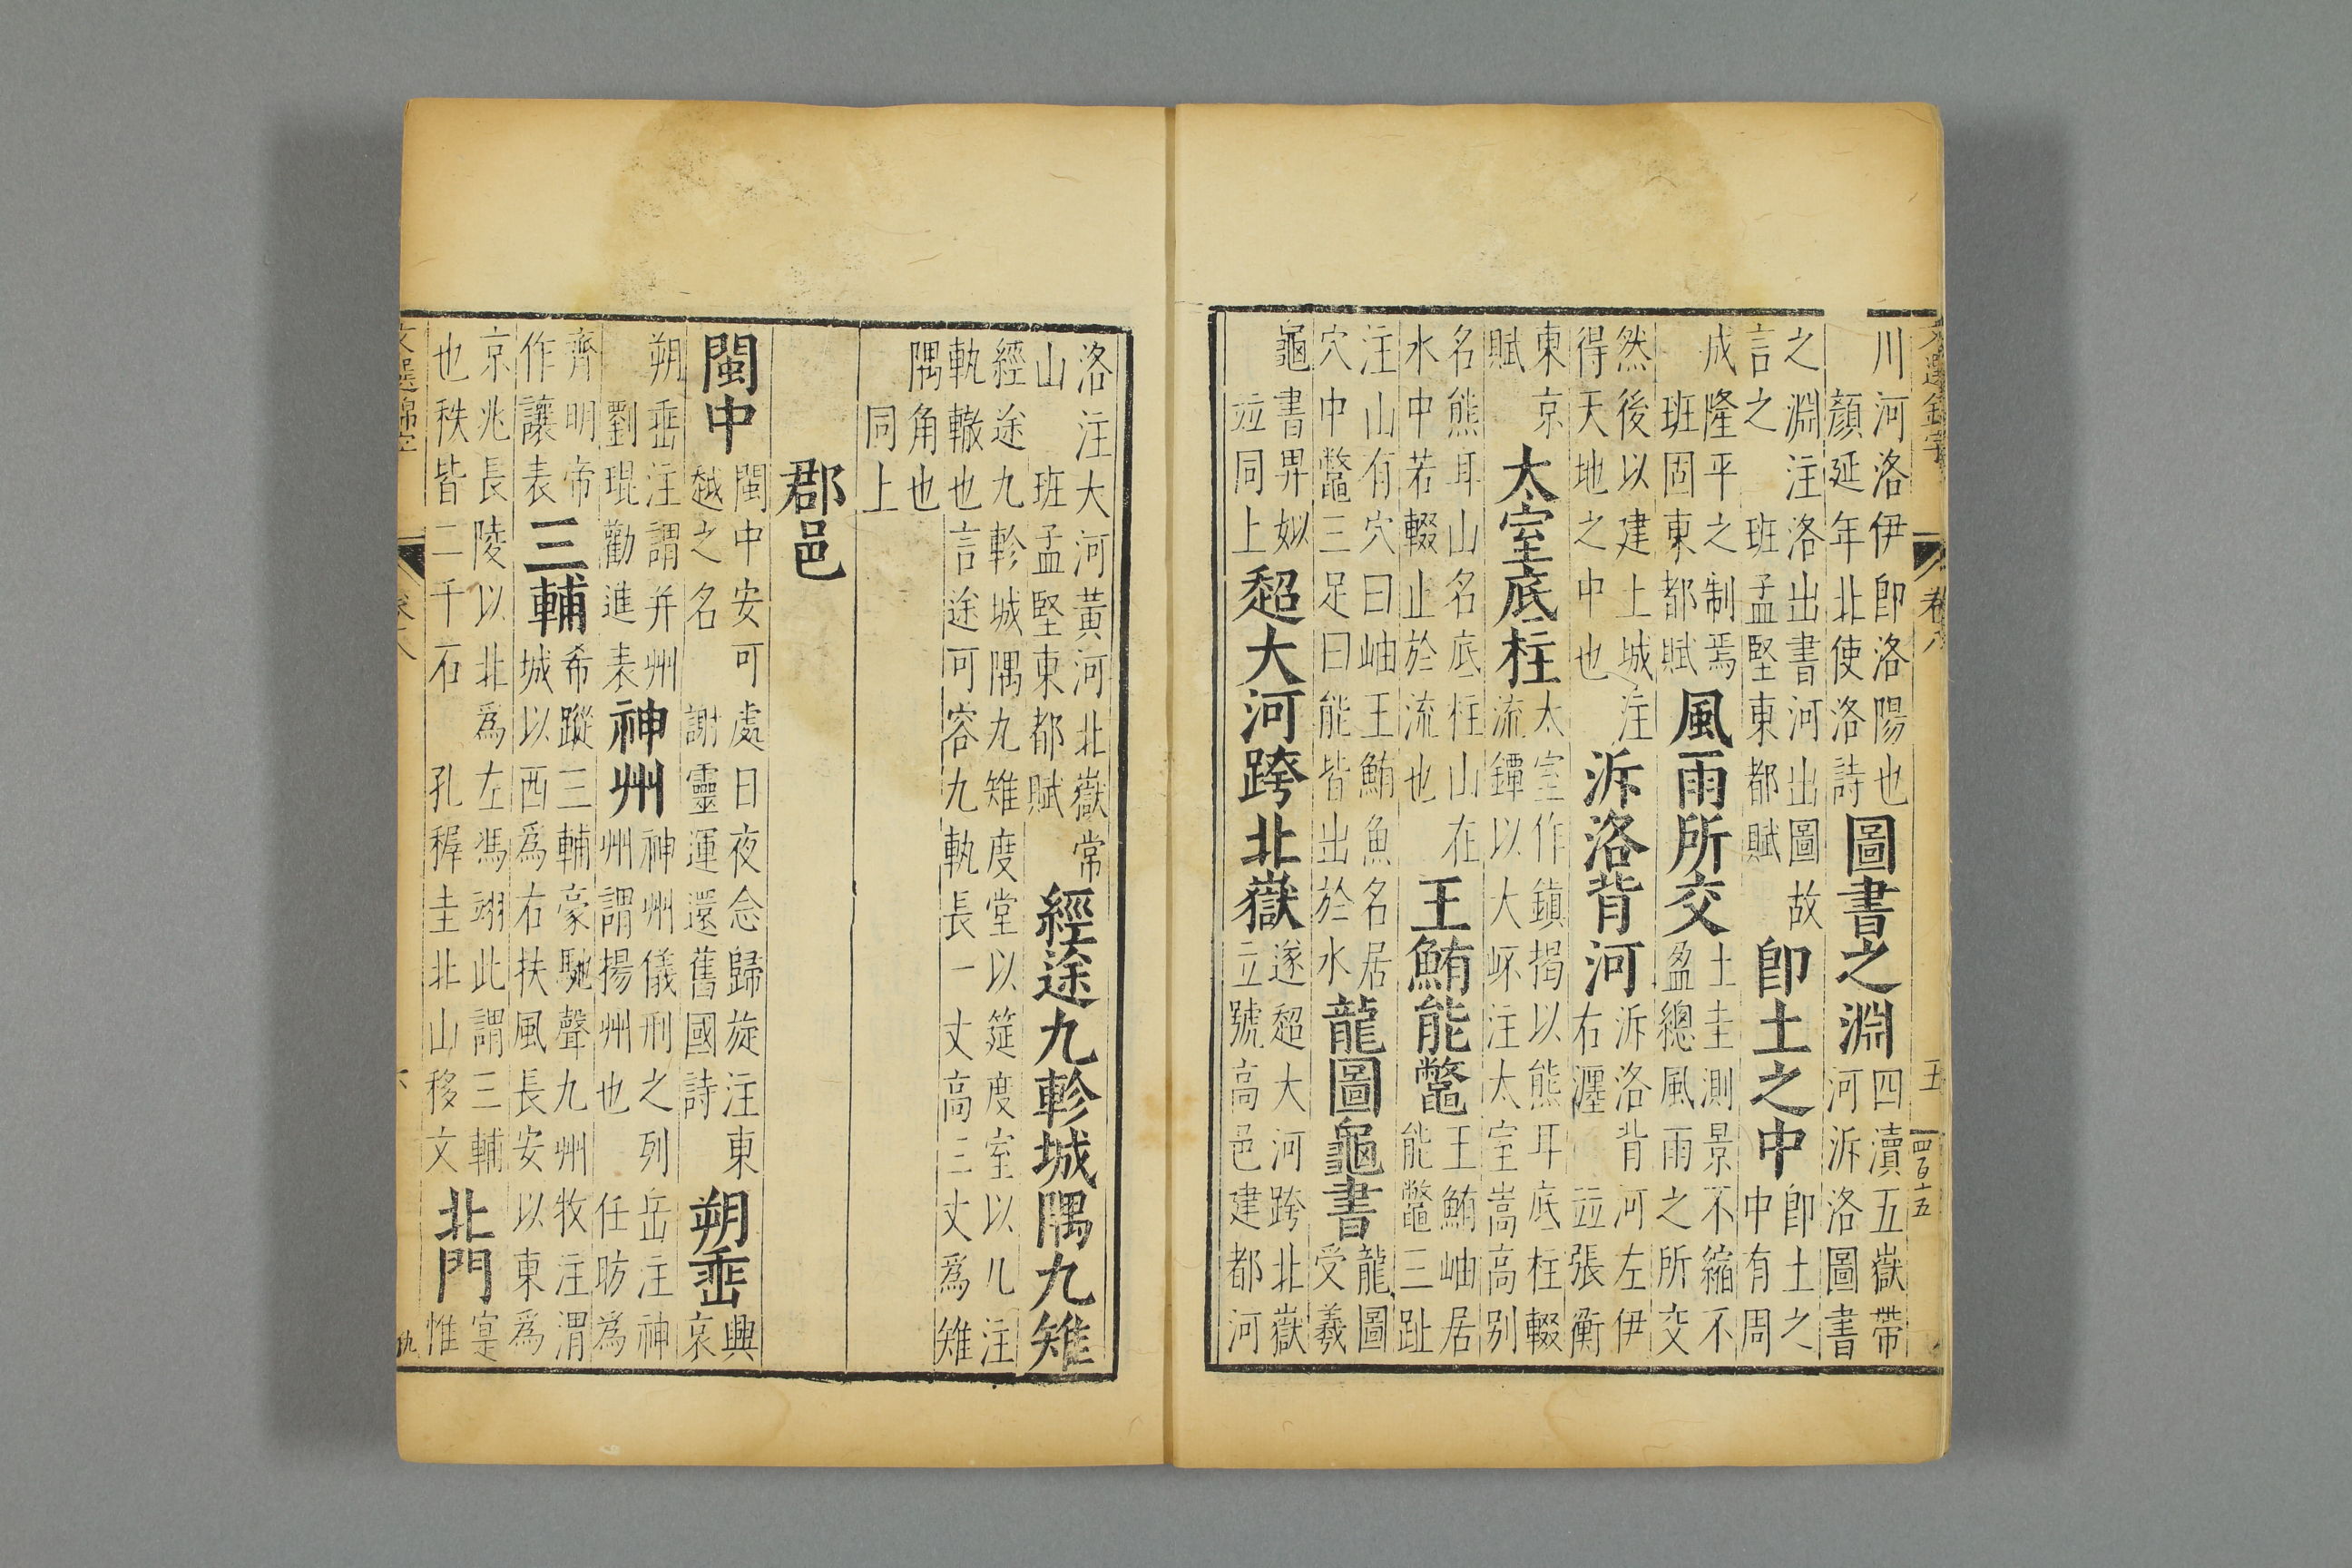 文選錦字 卷八 五 四百十五
川河洛伊卽洛陽也
顏延年北使洛詩
圖書之淵
四瀆五嶽帶
河泝洛圖書
之淵注洛出書河出圖故
言之 班孟堅東都賦
卽土之中
卽土之
中有周
成隆平之制焉
班固東都賦
風雨所交
土圭測景不縮不
盈總風雨之所交
然後以建上城注
得天地之中也
泝洛背河
泝洛背河左伊
右瀍 竝張衡
東京
賦
太室底柱
太室作鎮揭以熊耳底柱輟
流鐔以大岯注太室嵩高別
名熊耳山名底柱山在
水中若輟止於流也
王鮪能鼈
王鮪岫居
能鼈三趾
注山有穴曰岫王鮪魚名居
穴中鼈三足曰能皆出於水
龍圖龜書
龍圖
受羲
龜書畀姒
竝同上
超大河跨北嶽
遂超大河跨北嶽
立號高邑建都河
洛注大河黃河北嶽常
山 班孟堅東都賦
經途九軫城隅九雉
經途九軫城隅九雉度堂以筵度室以几注
軌轍也言途可容九軌長一丈高三丈爲雉
隅角也
同上
郡邑
閩中
閩中安可處日夜念歸旋注東
越之名 謝靈運還舊國詩
朔埀
興
哀
朔埀注謂并州
劉琨勸進表
神州
神州儀刑之列岳注神
州謂揚州也 任昉爲
齊明帝
作讓表
三輔
希蹤三輔豪馳聲九州牧注渭
城以西爲右扶風長安以東爲
京兆長陵以北爲左馮翊此謂三輔
也秩皆二千石 孔稺圭北山移文
北門
寔
惟
文選錦字